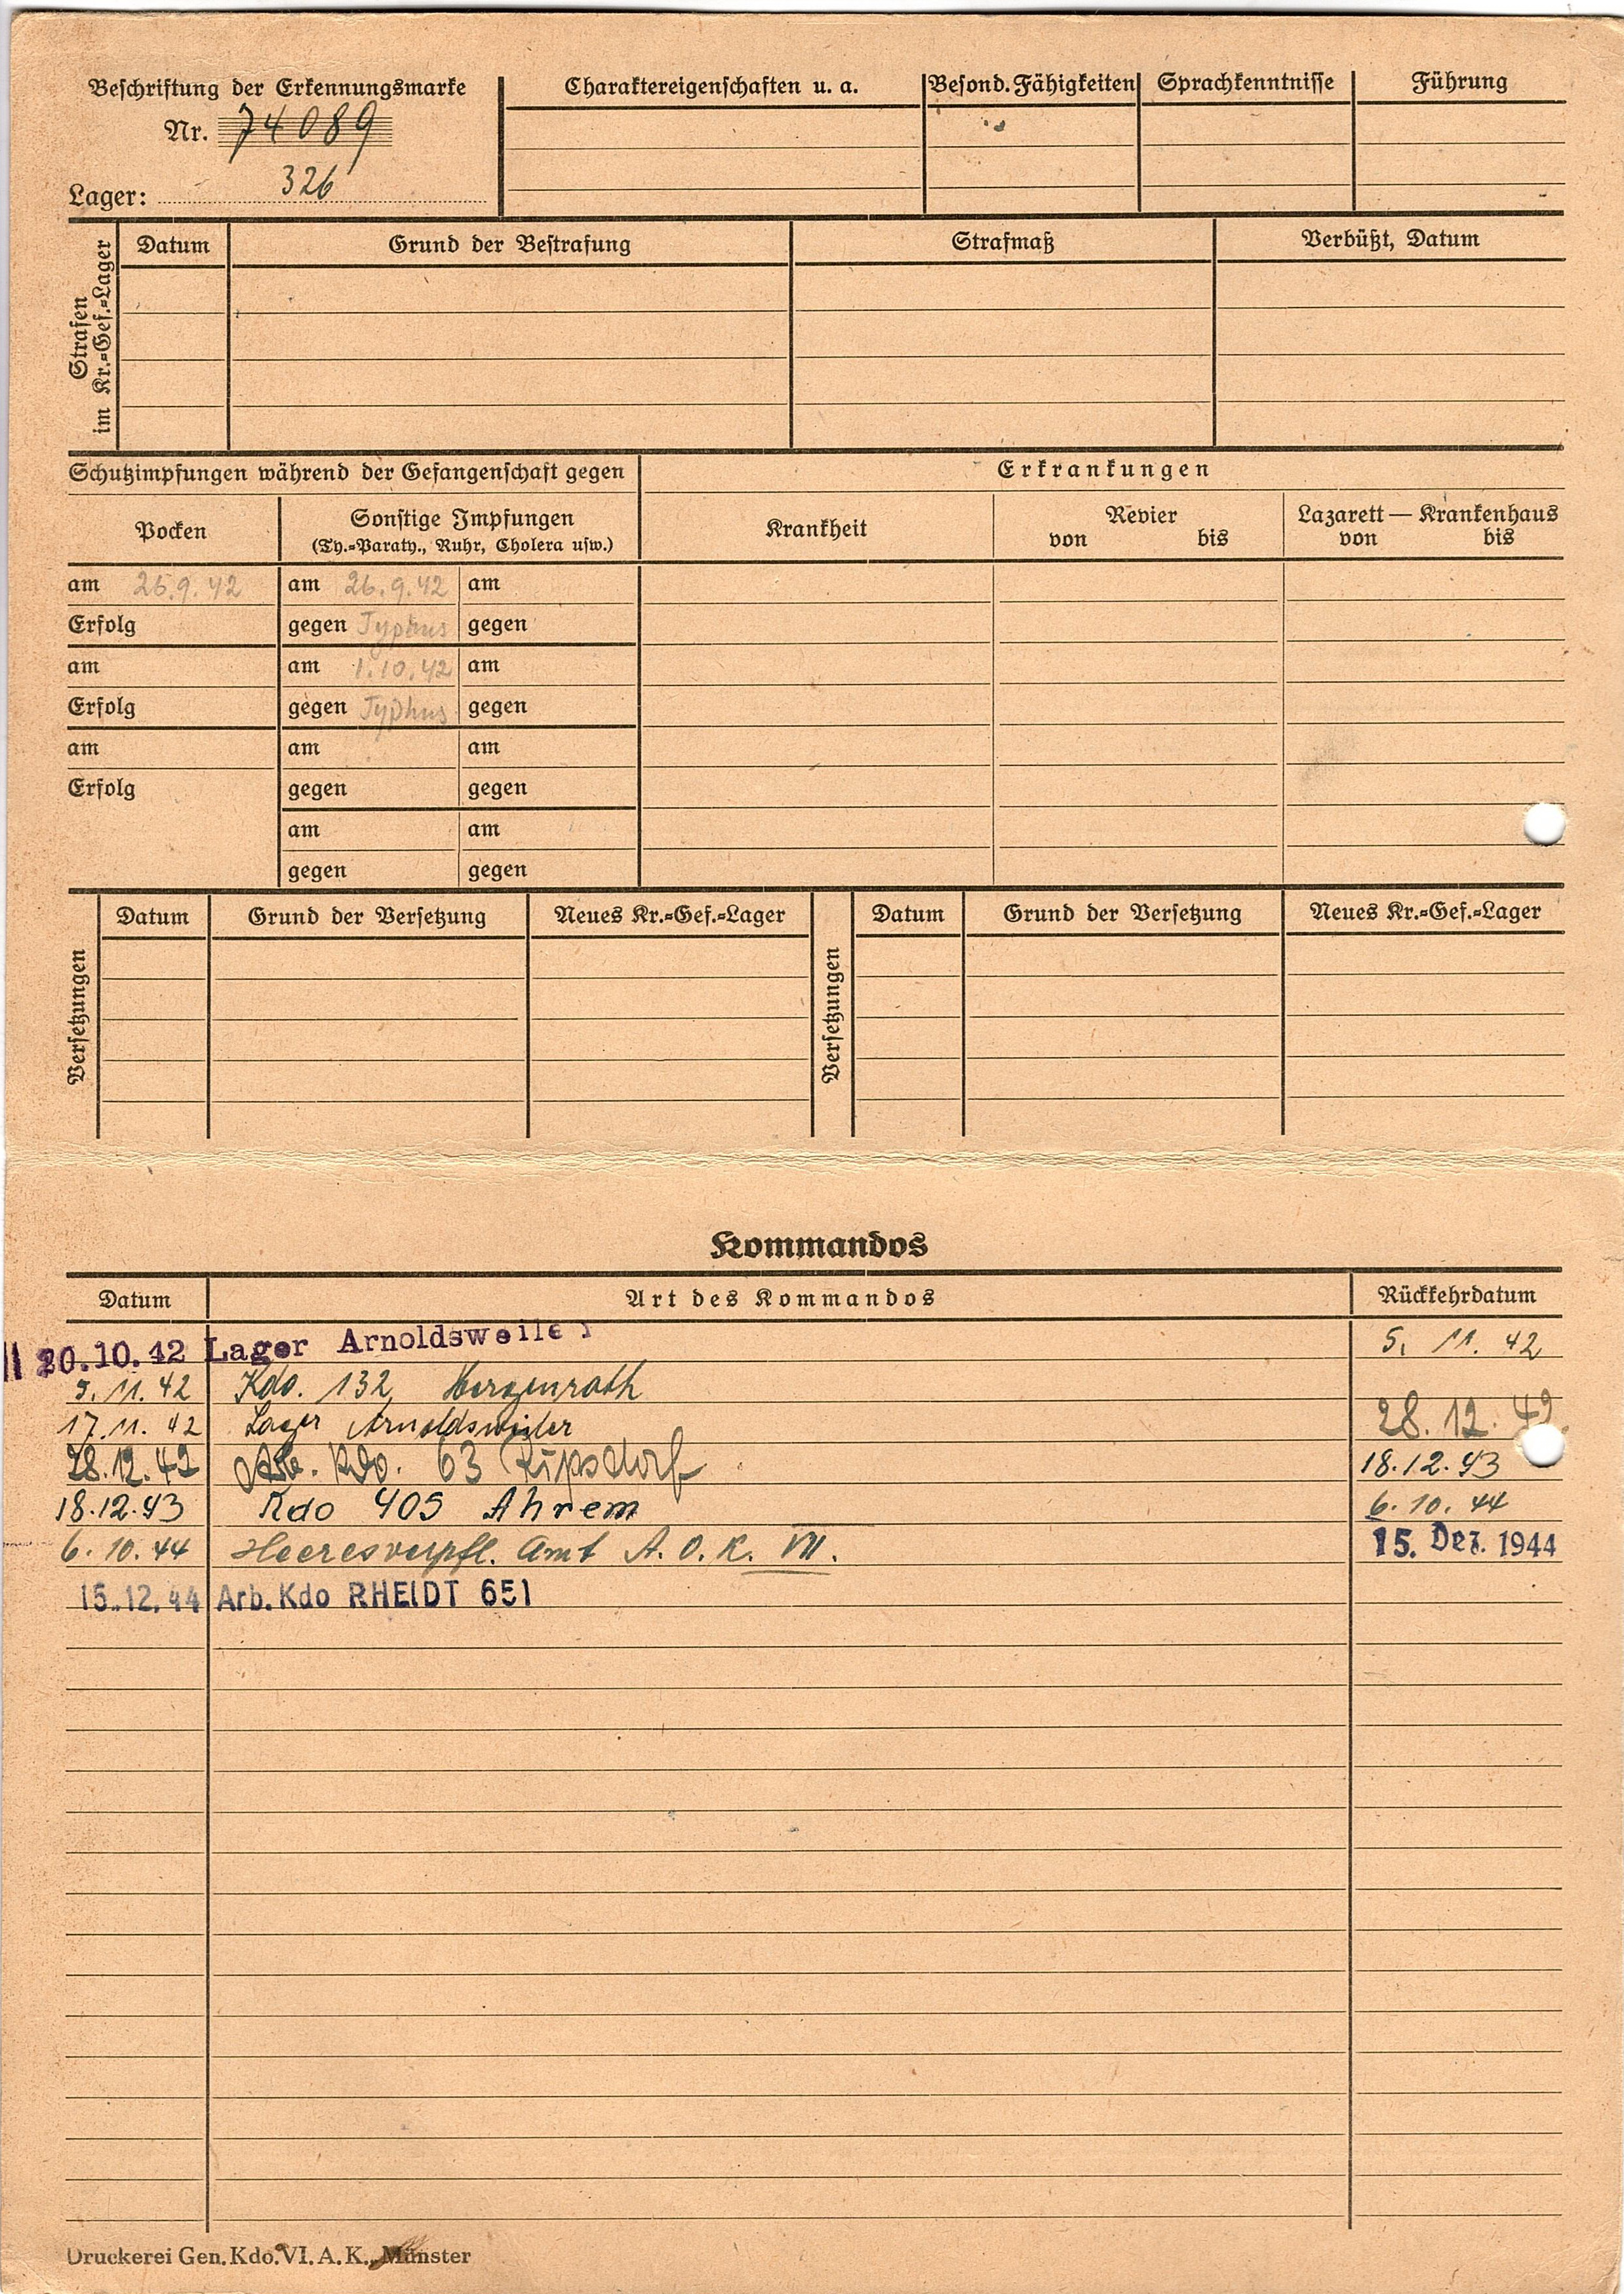 Beschriftung der Erkennungsmarke
Nr. 74089
Lager: 326
Charaktereigenschaften u. a.
Besond. Fähigkeiten
Sprachkenntnisse
Führung
Strafen
im Kr.=Gef.=Lager
Datum
Grund der Bestrafung
Strafmaß
Verbüßt, Datum
Schutzimpfungen während der Gefangenschaft gegen
Erkrankungen
Pocken
Sonstige Impfungen
(Ty.=Paraty., Ruhr, Cholera usw.)
Krankheit
Revier
von bis
Lazarett — Krankenhaus
von bis
am 26.9.42 am 26.9.42 am
Erfolg gegen Typhus gegen
am am 1.10.42 am
Erfolg gegen Typhus gegen
am am am
Erfolg gegen gegen
am am
gegen gegen
Versetzungen
Datum Grund der Versetzung Neues Kr.=Gef.=Lager
Versetzungen
Datum Grund der Versetzung Neues Kr.=Gef.=Lager
Kommandos
Datum Art des Kommandos Rückkehrdatum
20.10.42 Lager Arnoldsweiler 5. 11. 42
5. 11. 42 Kdo. 132 Hergenrath
17.11. 42 Lager Arnoldsweiler 28. 12. 42
28.12.42 Arb. Kdo. 63 Ripsdorf 18.12.43
18.12.43 Kdo 405 Ahrem 6. 10. 44
6. 10. 44 Heeresverpfl. Amt A. O. K. VII. 15. Dez. 1944
15.12.44 Arb. Kdo RHEIDT 651
Druckerei Gen. Kdo. VI. A. K., Münster